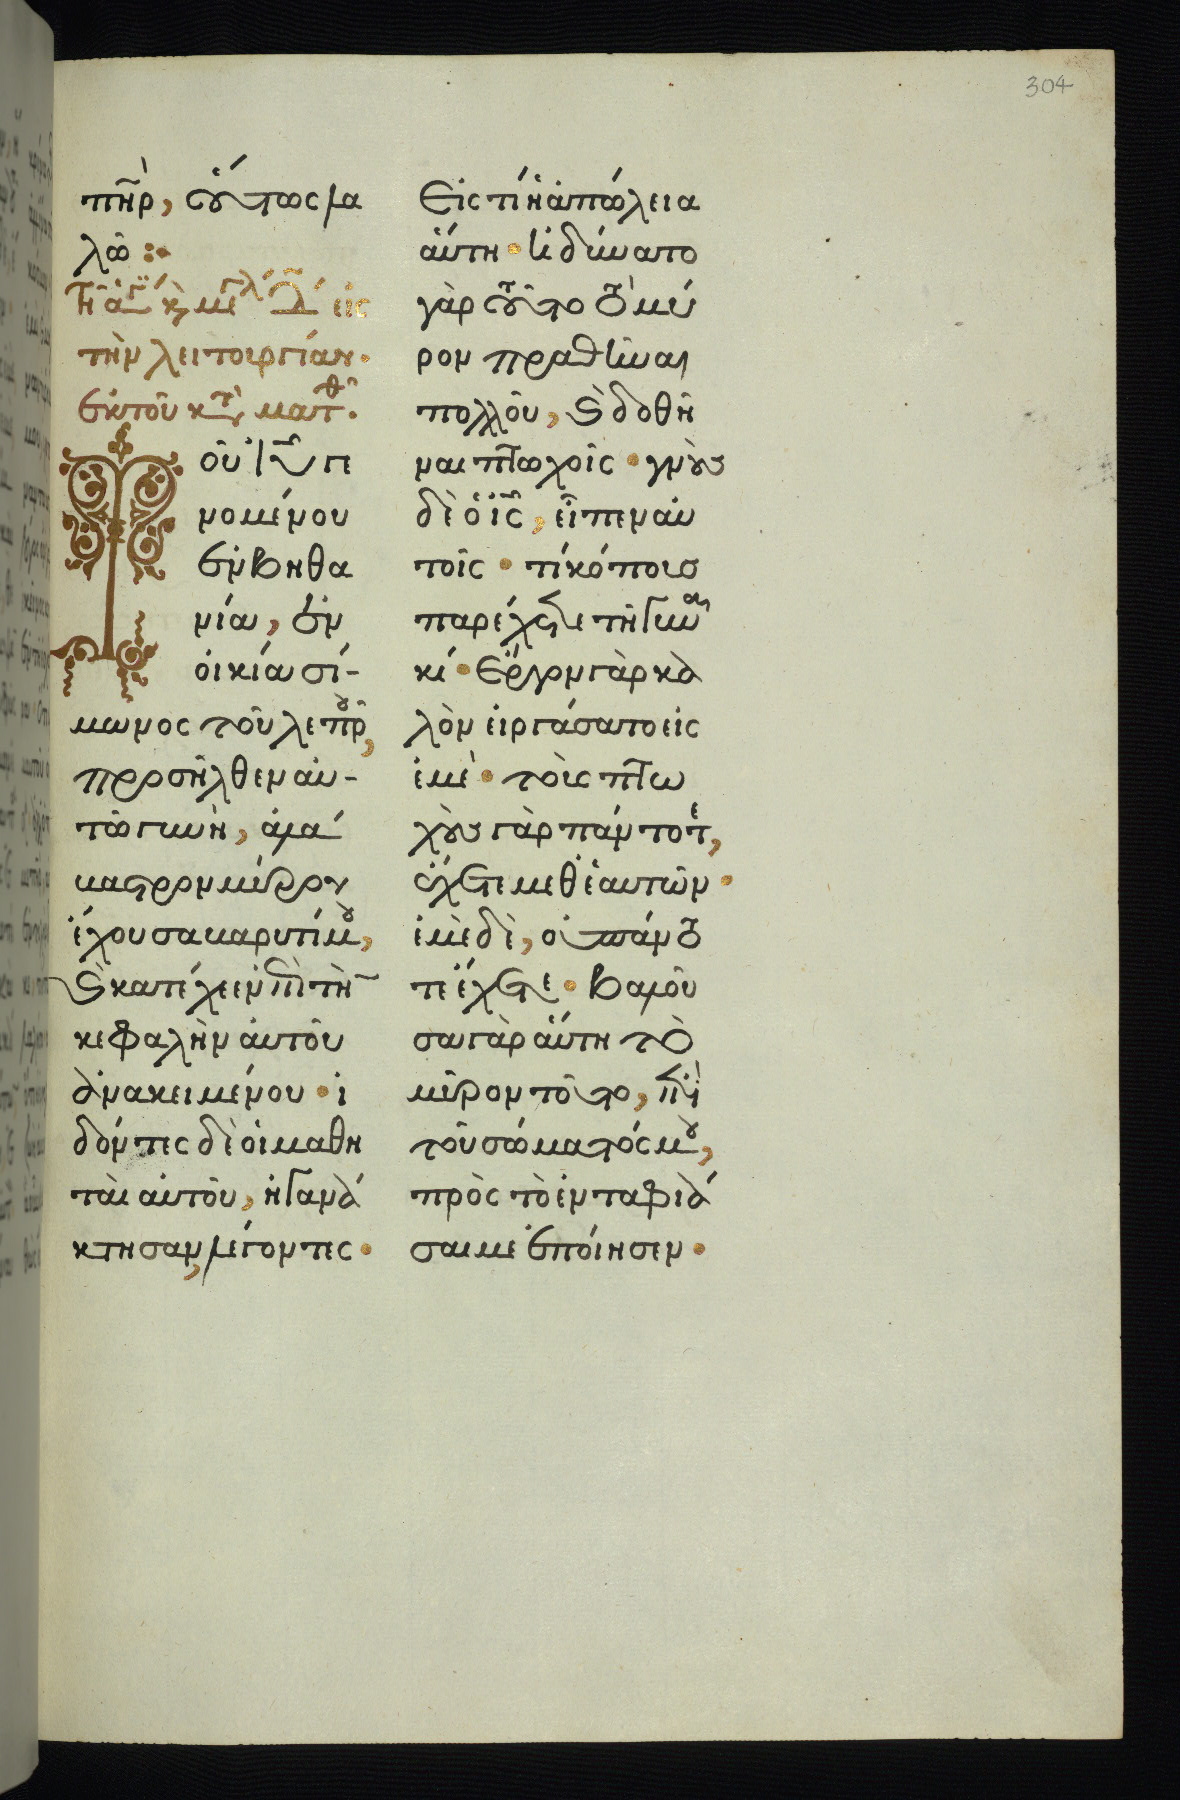 304
πη̅ρ, οὕτως λα
λῶ :
Τῇ ἁγ κ μεγλ δ εἰς
τὴν λειτουργίαν.
ἐκ τοῦ κτ ματθ.
Τοῦ ἰῦ γε
νομένου
ἐν βηθα
νία, ἐν
οἰκία σί-
μωνος τοῦ λεπροῦ,
προσῆλθεν αὐ-
τῶ γυνὴ, ἀλά
βαστρον μύρου
ἔχουσα βαρυτίμου,
καὶ κατέχεεν ἐπὶ τὴν
κεφαλὴν αὐτοῦ
ἀνακειμένου · ἰ
δόντες δὲ οἱ μαθη
ταὶ αὐτοῦ, ἠγανά
κτησαν, λέγοντες ·
Εἰς τί ἡ ἀπώλεια
αὕτη · ἠδύνατο
γὰρ τοῦτο τὸ μύ
ρον πραθῆναι
πολλοῦ, καὶ δοθῆ
ναι πτωχοῖς · γνοὺς
δὲ ὁ ἰς, εἶπεν αὐ
τοῖς · τί κόπους
παρέχετε τῆ γυναι
κί · ἔργον γὰρ κα
λὸν εἰργάσατο εἰς
ἐμὲ · τοὺς πτω
χοὺς γὰρ πάντοτε,
ἔχετε μεθ' ἑαυτῶν ·
ἐμὲ δὲ, οὐ πάντο
τε ἔχετε · βαλοῦ
σα γὰρ αὕτη τὸ
μύρον τοῦτο, ἐπὶ
τοῦ σώματός μου,
πρὸς τὸ ἐνταφιά
σαι με ἐποίησεν ·